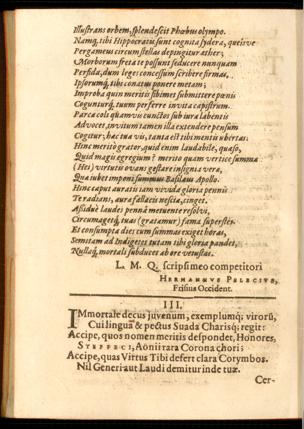 Illustrans orbem, splendescit Phœbus olympo.
Namq; tibi Hippocratis sunt cognita sydera, queisve
Pergameus circum stellas depingitur æther;
Morborum freta te possunt seducere nunquam
Perfida, dum leges concessum scribere firmas.
Ipsorumq; tibi conatus ponere metam;
Improba quin meritis sibimet submittere pœnis
Cogunturq; tuum perferre invita capistrum.
Parca colò quamvis cunctos sub iura labentis
Advocet, invitum tamen illa extendere pensum
Cogitur; hac tua vis, tanta est tibi mentis ubertas:
Hinc meritò grator, quid enim laudabile, quæso,
Quid magis egregium? merito quam vertice summa
(Hei) virtutis ovans gestare insignia vera,
Qua iubet imponi summus Basileus Apollo.
Hinc caput auratis iam vivida gloria pennis
Te radians, aura fallacis nescia, cinget.
Assiduè laudes penna metuente resolvi,
Circumagetq; tuas (gratamur) fama superstes.
Et consumpta dies cum summas exiget horas,
Semitam ad Indigetes tutam tibi gloria pandet,
Nullaq; mortalis subducet ab ore vetustas.
L. M. Q. scripsi meo competitori
HERMANNUS PELECIUS,
Frisius Occident.
III.
IMmortale decus juvenum, exemplumq; virorũ,
Cui linguã & pectus Suada Charisq; regit:
Accipe, quos nomen meritis despondet, Honores,
STEFFECI, Aonii rara Corona chori:
Accipe, quas Virtus Tibi defert clara Corymbos.
Nil Generi aut Laudi demitur inde tuæ.
Cer-